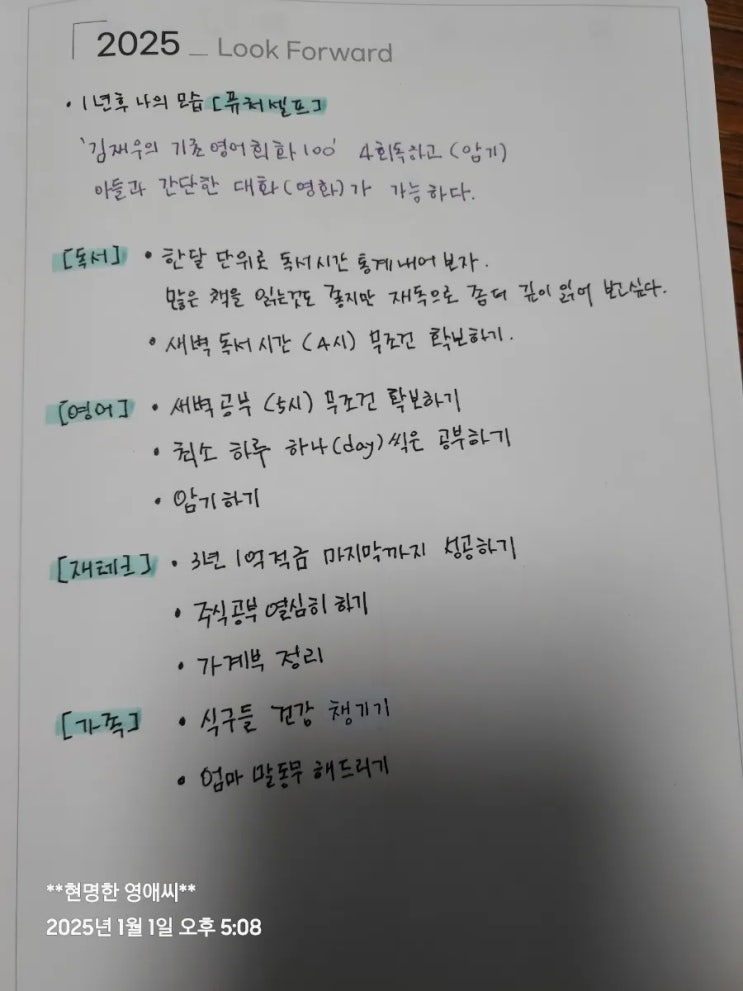 2025 _ Look Forward
• 1년후 나의 모습 [퓨처셀프]
'김재우의 기초영어회화 100' 4회독하고 (암기)
아들과 간단한 대화(영화)가 가능하다.
[독서] • 한달 단위로 독서시간 통계내어 보자.
많은 책을 읽는것도 좋지만 재독으로 좀더 깊이 읽어 보고싶다.
• 새벽 독서시간 (4시) 무조건 확보하기.
[영어] • 새벽공부 (5시) 무조건 확보하기
• 최소 하루 하나(day)씩은 공부하기
• 암기하기
[재테크] • 3년 1억적금 마지막까지 성공하기
• 주식공부 열심히 하기
• 가계부 정리
[가족] • 식구들 건강 챙기기
• 엄마 말동무 해드리기
**현명한 영애씨**
2025년 1월 1일 오후 5:08